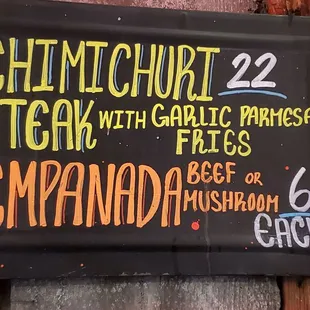 CHIMICHURI 22
STEAK WITH GARLIC PARMESA
FRIES
EMPANADA BEEF OR
MUSHROOM 6
EACH